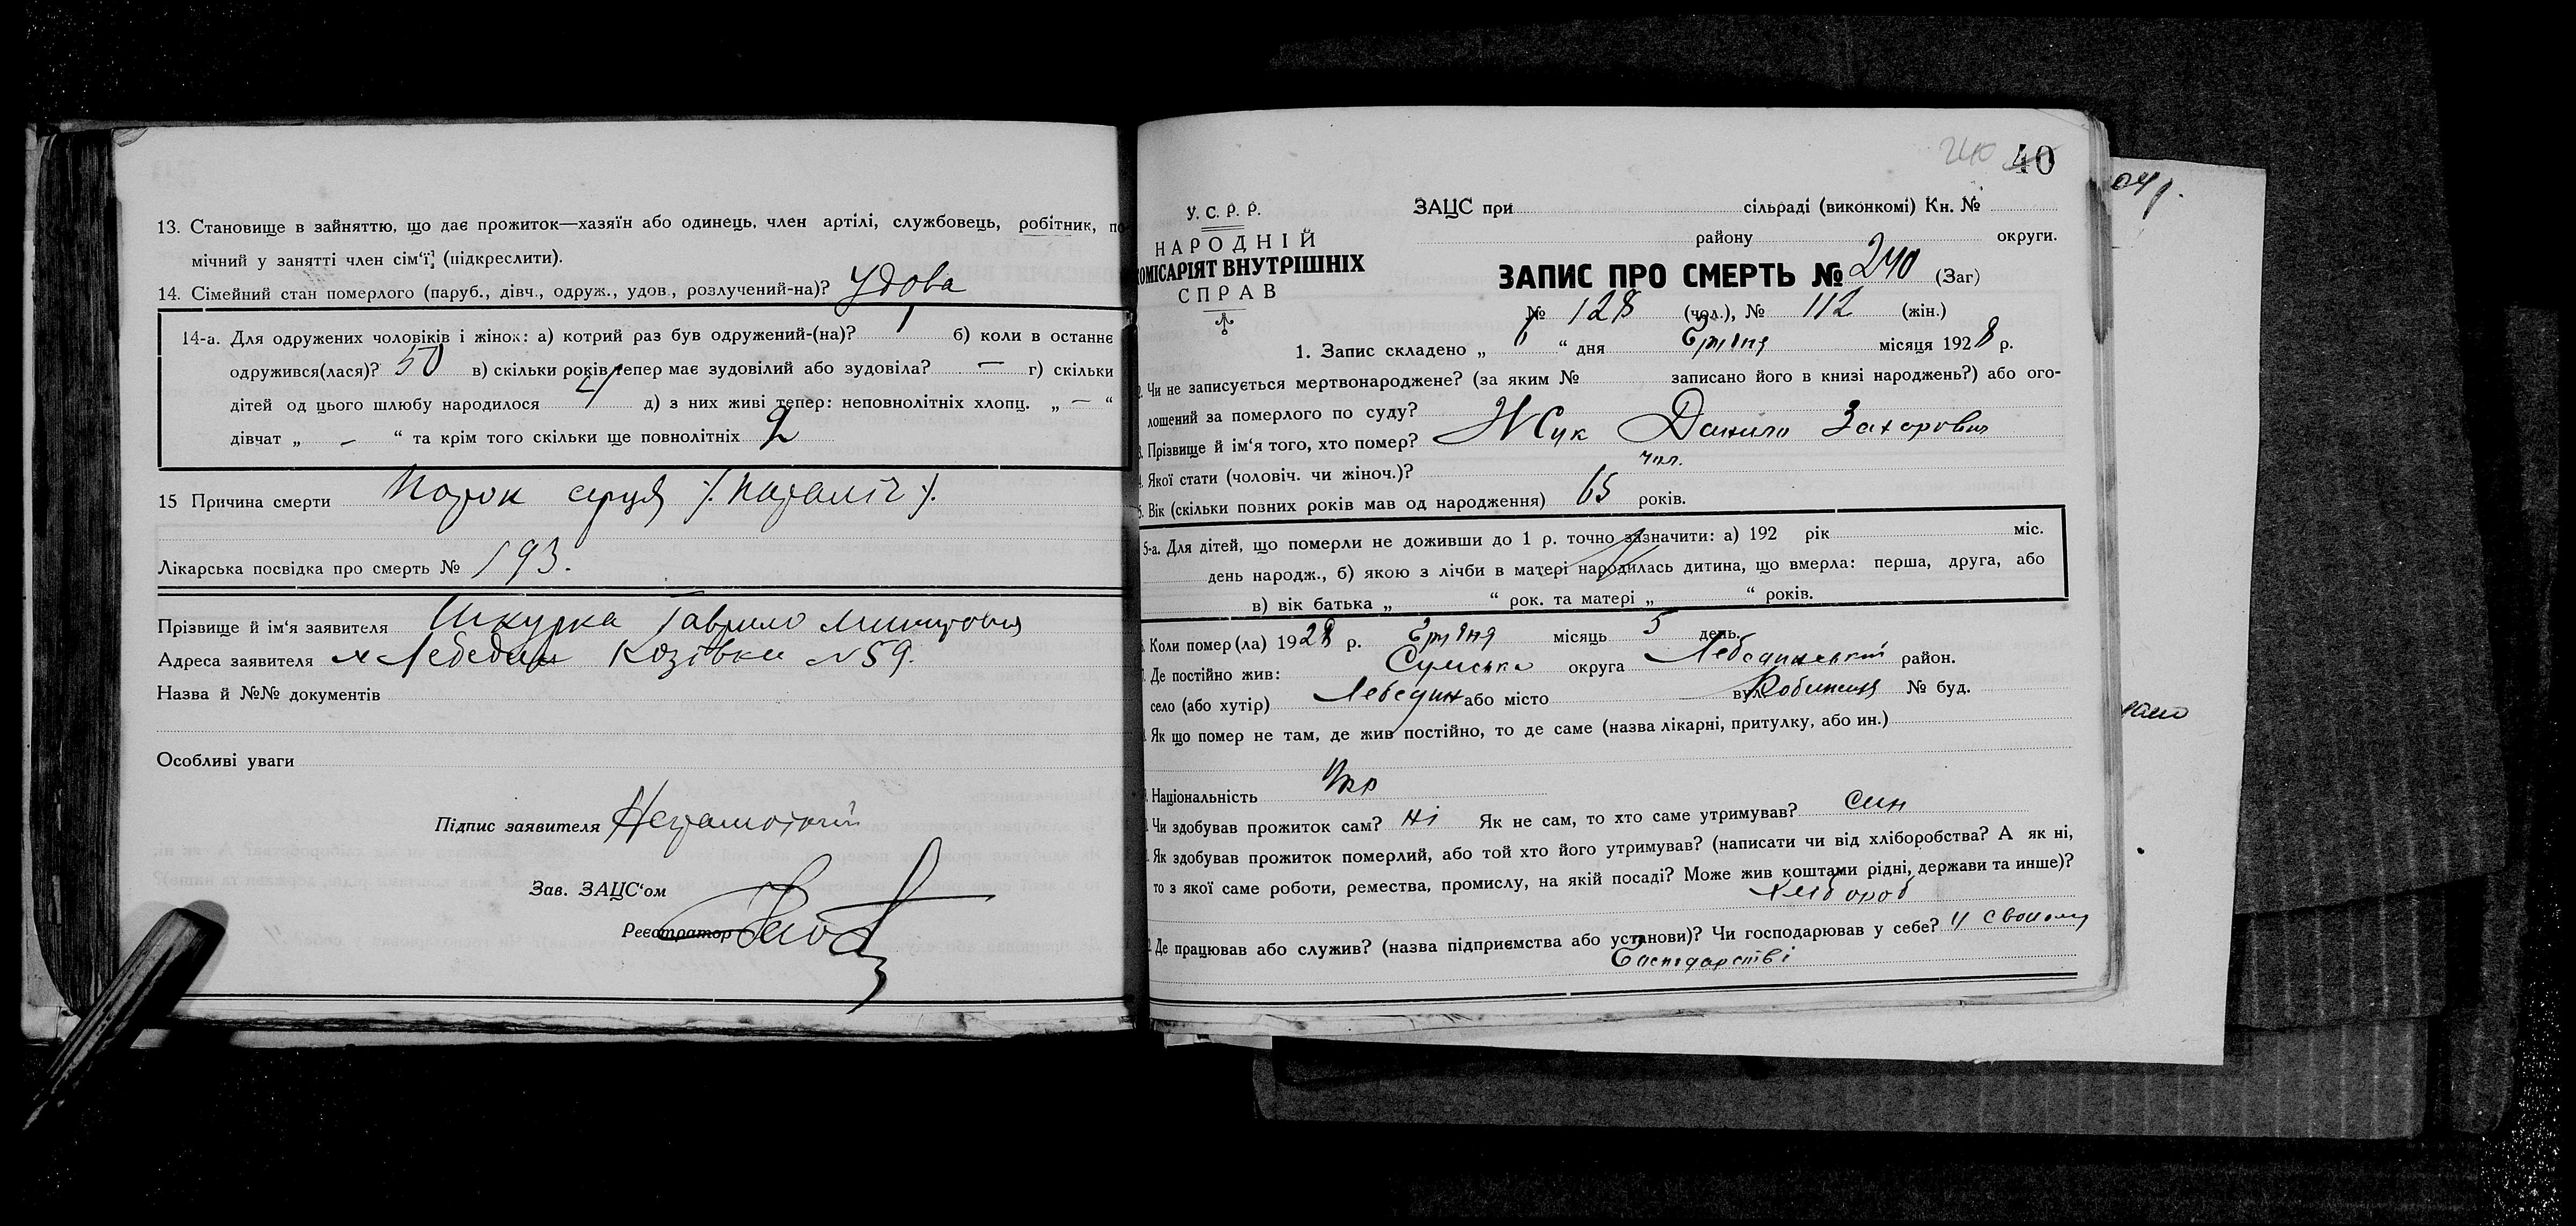 13. Становище в зайняттю, що дає прожиток—хазяїн або одинець, член артілі, службовець, робітник, по
мічний у занятті член сім'ї, (підкреслити).
14. Сімейний стан померлого (паруб., дівч., одруж., удов., розлучений-на)? Удова
14-а. Для одружених чоловіків і жінок: а) котрий раз був одружений-(на)? 1 б) коли в останнє
одружився(лася)? 50 в) скільки років тепер має зудовілий або зудовіла? — г) скільки
дітей од цього шлюбу народилося 4 д) з них живі тепер: неповнолітніх хлопц. „ — “
дівчат „ – “ та крім того скільки ще повнолітніх 2
15 Причина смерти Порок серця
Лікарська посвідка про смерть № 193.
Прізвище й ім'я заявителя Шкурка Гаврило
Адреса заявителя м Лебедин Козівка №59.
Назва й №№ документів
Особливі уваги
Підпис заявителя Неграмотний
Зав. ЗАЦС'ом
Реєстратор
240 40
У. С. Р. Р.
НАРОДНІЙ
КОМІСАРІЯТ ВНУТРІШНІХ
СПРАВ
ЗАЦС при сільраді (виконкомі) Кн. №
району округи.
ЗАПИС ПРО СМЕРТЬ № 240 (Заг)
№ 128 (чол.), № 112 (жін.)
1. Запис складено „ 6 “ дня Грудня місяця 1928 р.
2. Чи не записується мертвонароджене? (за яким № записано його в книзі народжень?) або ого-
лошений за померлого по суду?
3. Прізвище й ім'я того, хто помер? Жук Данило Захорович
4. Якої стати (чоловіч. чи жіноч.)? чол.
5. Вік (скільки повних років мав од народження) 65 років.
5-а. Для дітей, що померли не доживши до 1 р. точно зазначити: а) 192 рік міс.
день народж., б) якою з лічби в матері народилась дитина, що вмерла: перша, друга, або
в) вік батька „ “ рок. та матері „ “ років.
Коли помер(ла) 1928 р. Грудня місяць 5 день.
Де постійно жив: Сумська округа Лебединський район.
село (або хутір) Лебедин або місто вул. № буд.
Як що помер не там, де жив постійно, то де саме (назва лікарні, притулку, або ин.)
Національність Укр
Чи здобував прожиток сам? Ні Як не сам, то хто саме утримував? син
Як здобував прожиток померлий, або той хто його утримував? (написати чи від хліборобства? А як ні,
то з якої саме роботи, ремества, промислу, на якій посаді? Може жив коштами рідні, держави та инше)?
хлібороб
Де працював або служив? (назва підприємства або установи)? Чи господарював у себе? У своему
Господарстві